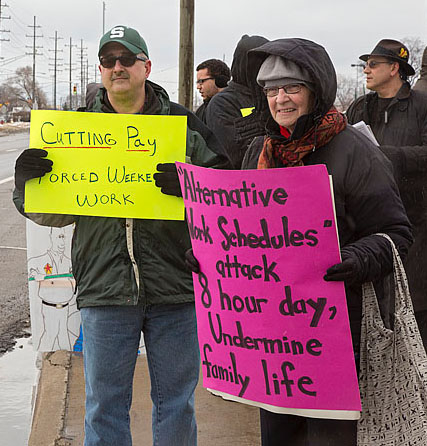 S
CUTTING PAY
FORCED WEEKEN
WORK
"Alternative
Work Schedules"
attack
8 hour day,
Undermine
family life